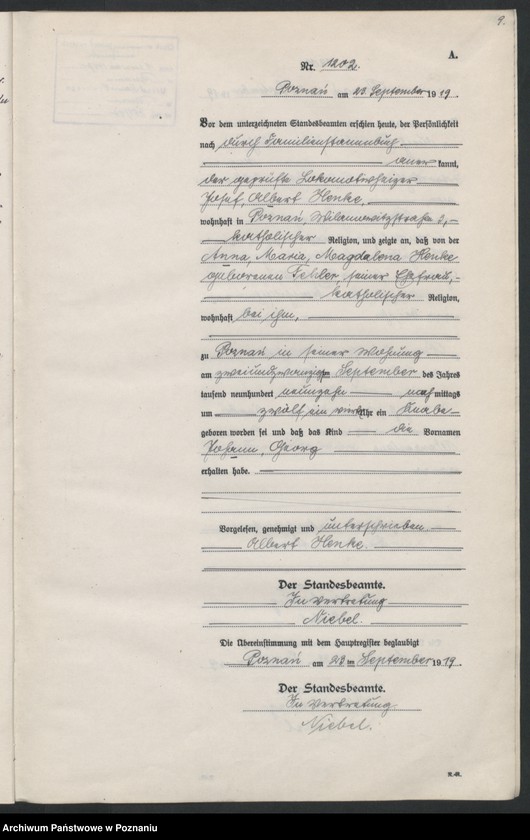 9.
A.
Nr. 1202.
Poznań am 23. September 1919.
Vor dem unterzeichneten Standesbeamten erschien heute, der Persönlichkeit
nach durch Familienstammbuch
aner kannt,
der geprüfte Lokomotivheizer
Josef, Albert Henke,
wohnhaft in Poznań,
katholischer Religion, und zeigte an, daß von der
Anna, Maria, Magdalena Henke
geborenen Felder, seiner Ehefrau,
katholischer Religion,
wohnhaft bei ihm,
zu Poznań in seiner Wohnung
am zweiundzwanzigsten September des Jahres
tausend neunhundert neunzehn nachmittags
um zwölf ein viertel Uhr ein Knabe
geboren worden sei und daß das Kind die Vornamen
Johann, Georg
erhalten habe.
Vorgelesen, genehmigt und unterschrieben
Albert Henke.
Der Standesbeamte.
In Vertretung
Niebel.
Die Übereinstimmung mit dem Hauptregister beglaubigt
Poznań am 23 ten September 1919.
Der Standesbeamte.
In Vertretung
Niebel.
Archiwum Państwowe w Poznaniu